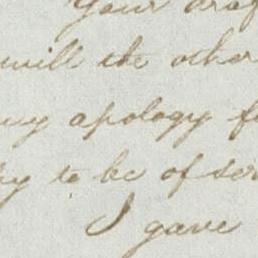 Your draf
will the other
my apology f
ry to be of ser
I gave